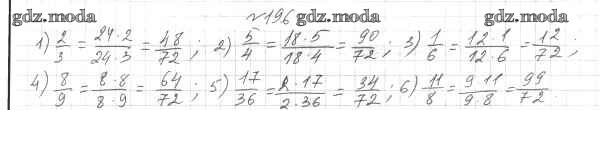 gdz.moda №196 gdz.moda gdz.moda
1) 2/3 = 24·2/24·3 = 48/72; 2) 5/4 = 18·5/18·4 = 90/72; 3) 1/6 = 12·1/12·6 = 12/72;
4) 8/9 = 8·8/8·9 = 64/72; 5) 17/36 = 2·17/2·36 = 34/72; 6) 11/8 = 9·11/9·8 = 99/72.